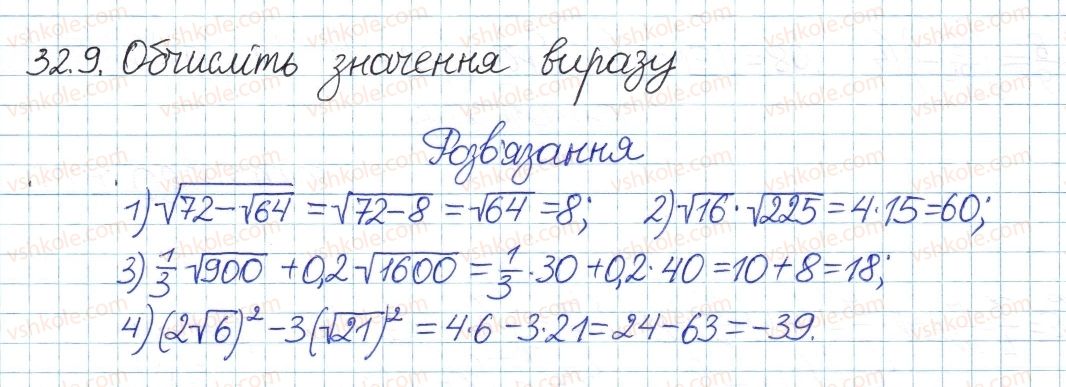 32.9. Обчисліть значення виразу
Розв'язання
1) √(72−√64) = √(72−8) = √64 = 8; 2) √16 · √225 = 4·15 = 60;
3) 1/3 · √900 + 0,2 √1600 = 1/3 · 30 + 0,2 · 40 = 10 + 8 = 18;
4) (2√6)² − 3(√21)² = 4·6 − 3·21 = 24 − 63 = −39.